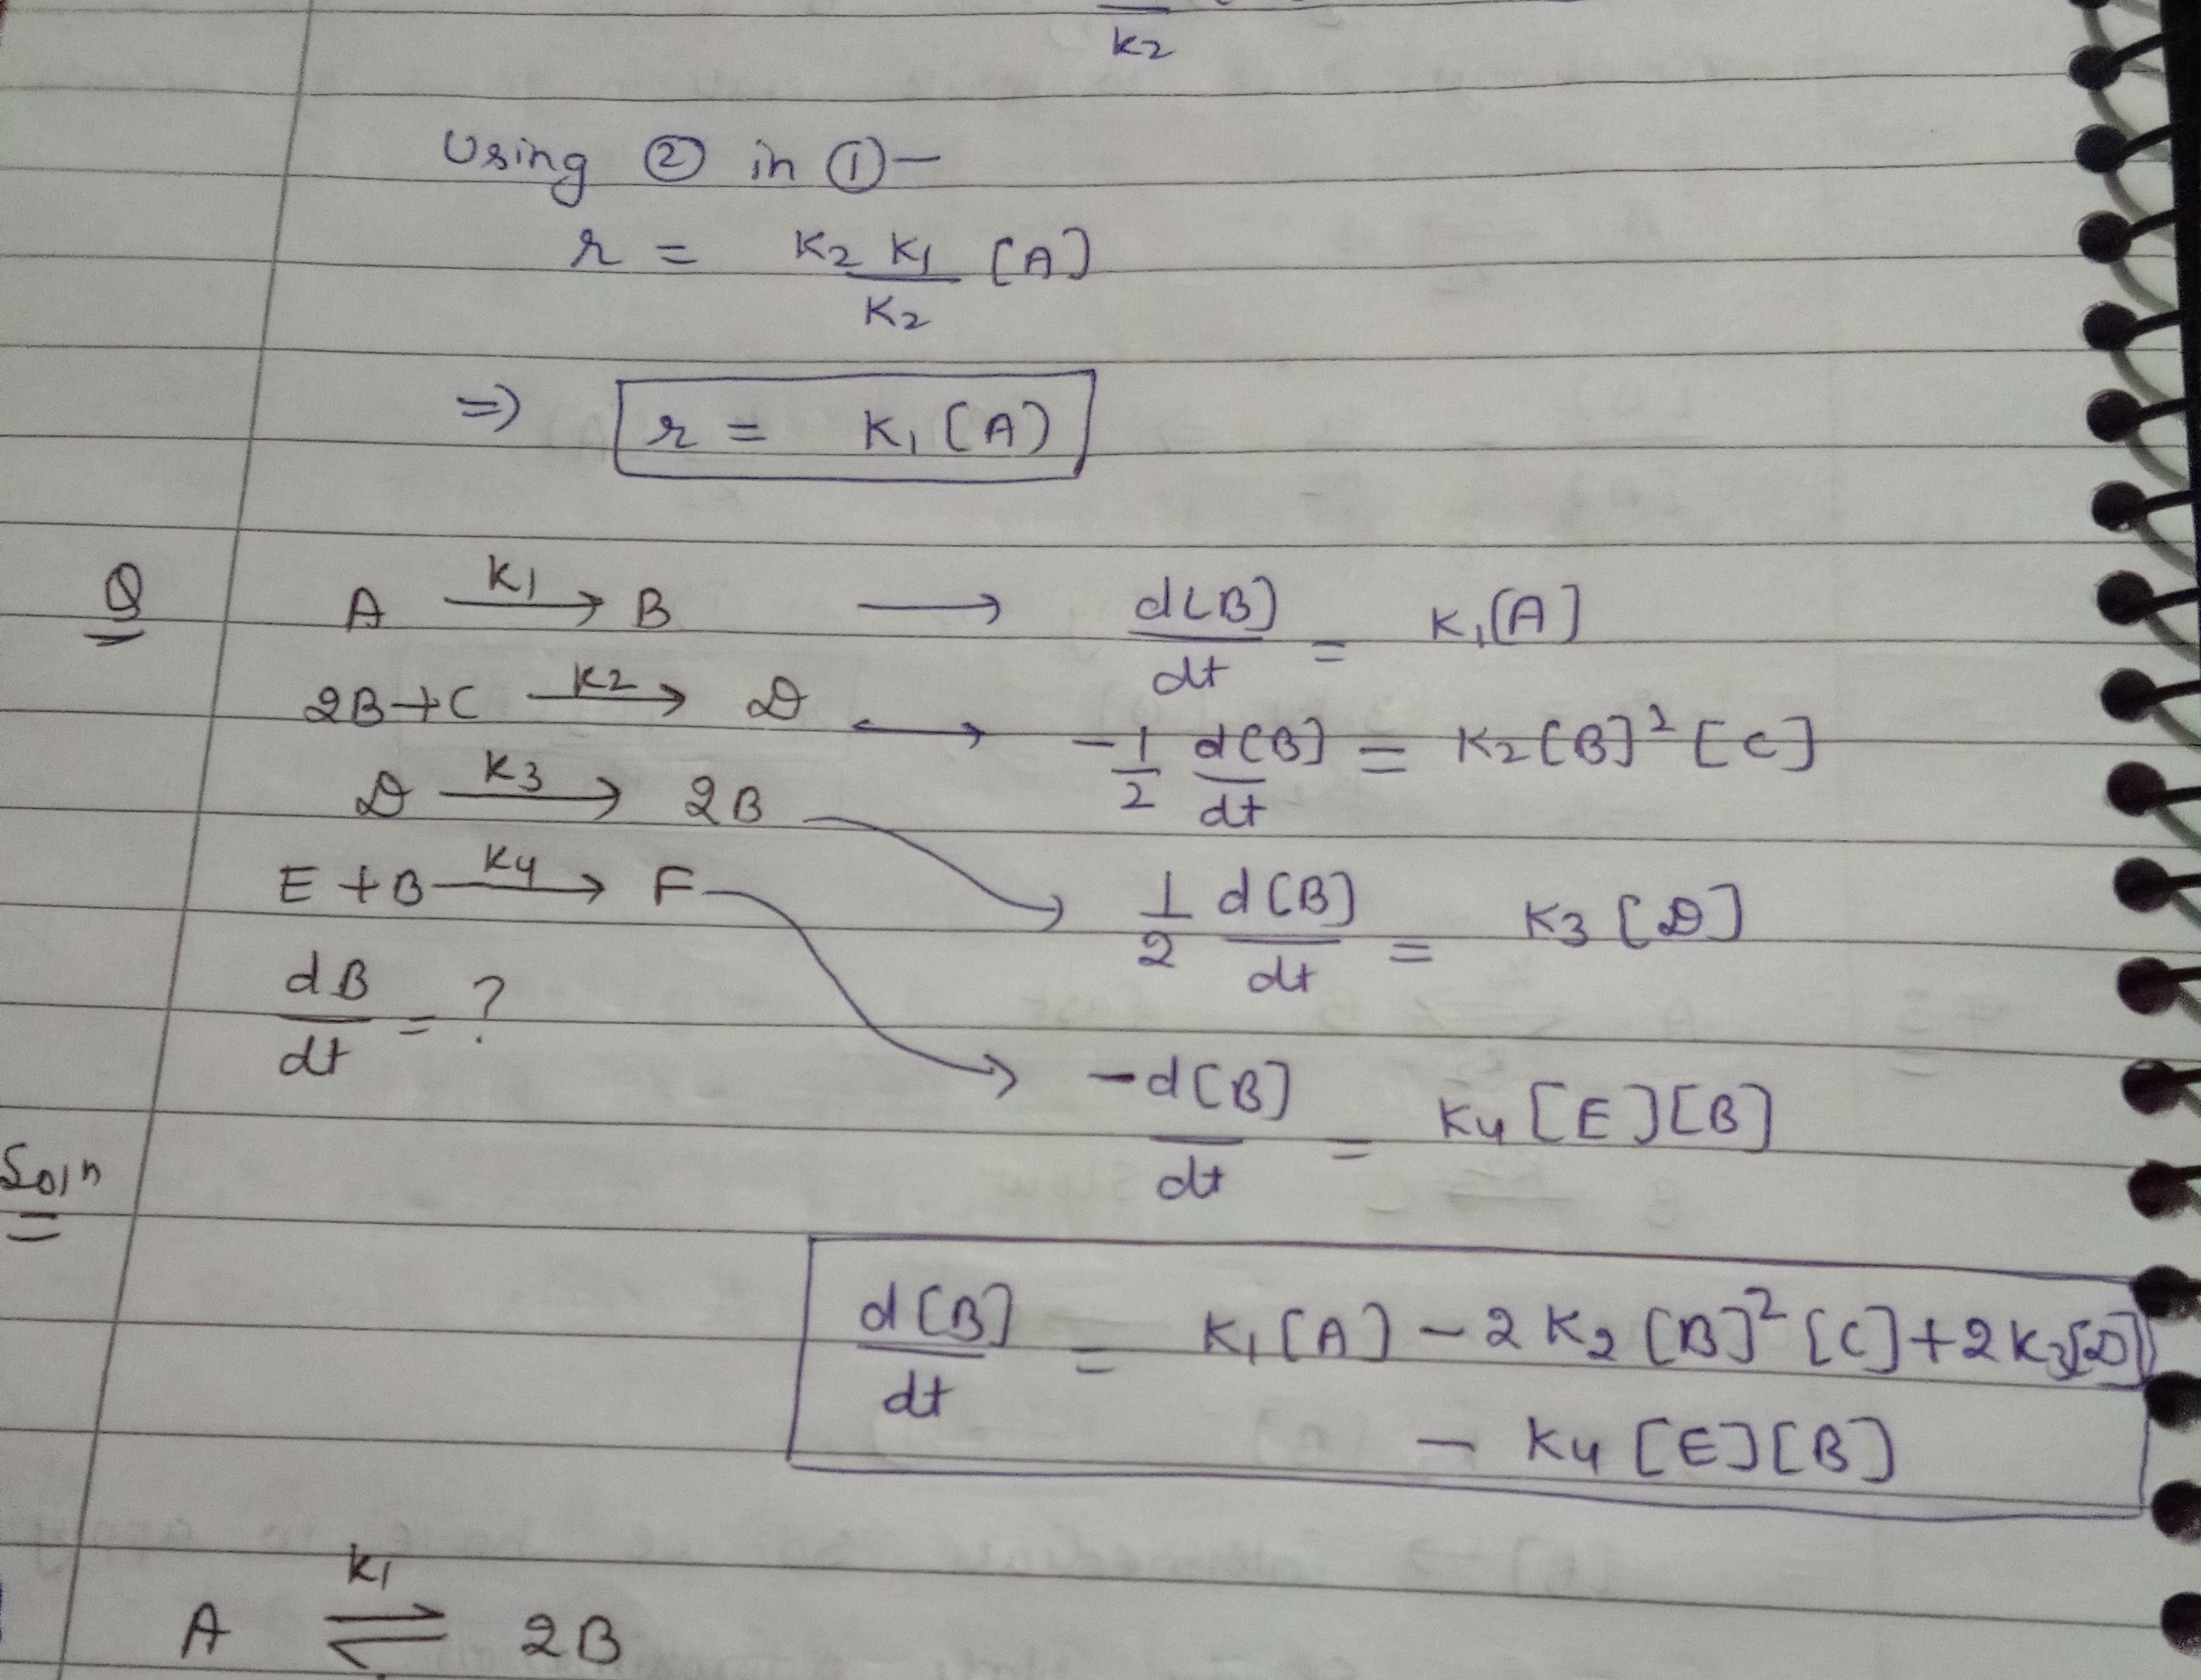 K2
Using ② in ①—
r = K2 K1 [A]
K2
⇒ r = K1 [A]
Q
A K1→ B ⟶ d[B]/dt = K1[A]
2B+C K2→ D ⟷ -1/2 d[B]/dt = K2[B]² [C]
D K3→ 2B → 1/2 d[B]/dt = K3 [D]
E+B K4→ F → -d[B]/dt = K4 [E][B]
dB/dt = ?
Soln
d[B]/dt = K1[A] - 2K2[B]²[C] + 2K3[D]
- K4 [E][B]
A K1⇌ 2B